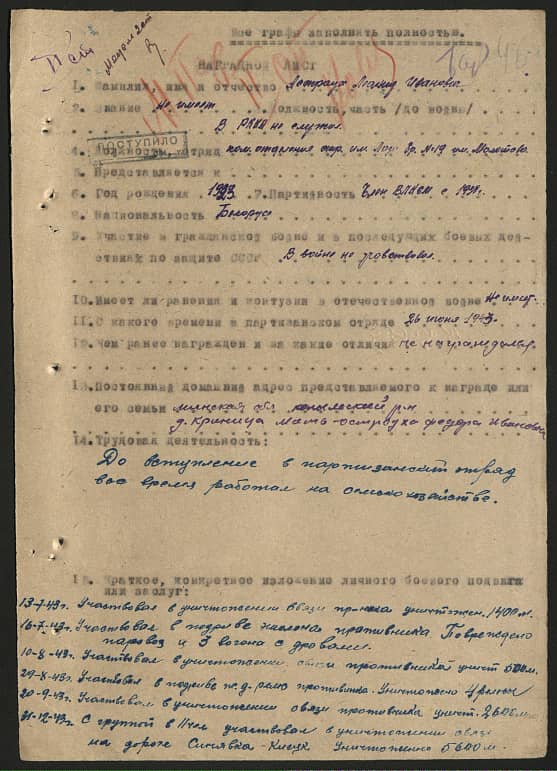 Все графы заполнять полностью.
НАГРАДНОЙ ЛИСТ
1. Фамилия, имя и отчество Леонид Иванович
2. Звание Не имеет. Должность, часть /до войны/
В РККА не служил.
ПОСТУПИЛО
4. Должность, отряд ком. отделения пар. им. №19 им. Молотова
5. Представляется к
6. Год рождения 1923 7. Партийность Член ВЛКСМ с
8. Национальность Белорус
9. Участие в гражданской войне и в последующих боевых дей-
ствиях по защите СССР В войне не участвовал.
10. Имеет ли ранения и контузии в отечественной войне Не имеет.
11. С какого времени в партизанском отряде 26 июня 1943
12. Чем ранее награжден и за какие отличия не награждался
13. Постоянный домашний адрес представляемого к награде или
его семьи минская обл. копыльский р-н
д. Криница мать-остроуха федора Ивановна
14. Трудовая деятельность:
До вступление в партизанский отряд
все время работал на сельскохозяйстве.
15. Краткое, конкретное изложение личного боевого подвига
или заслуг:
13-7-43г. Участвовал в уничтожении связи пр-ника уничтожен. 1400 м.
16-7-43г. Участвовал в подрыве эшелона противника. Повреждено
паровоз и 3 вагона с дровами.
10-8-43г. Участвовал в уничтожении связи противника уничт. 500 м.
29-8-43г. Участвовал в подрыве ж.д.-рельс противника. Уничтожено 4 рельсы
20-9-43г. Участвовал в уничтожении связи противника уничт. 2600 м.
31-12-43г. С группой в 11 чел участвовал в уничтожении связи
на дороге Синявка-Клецк Уничтоженно 5600 м.